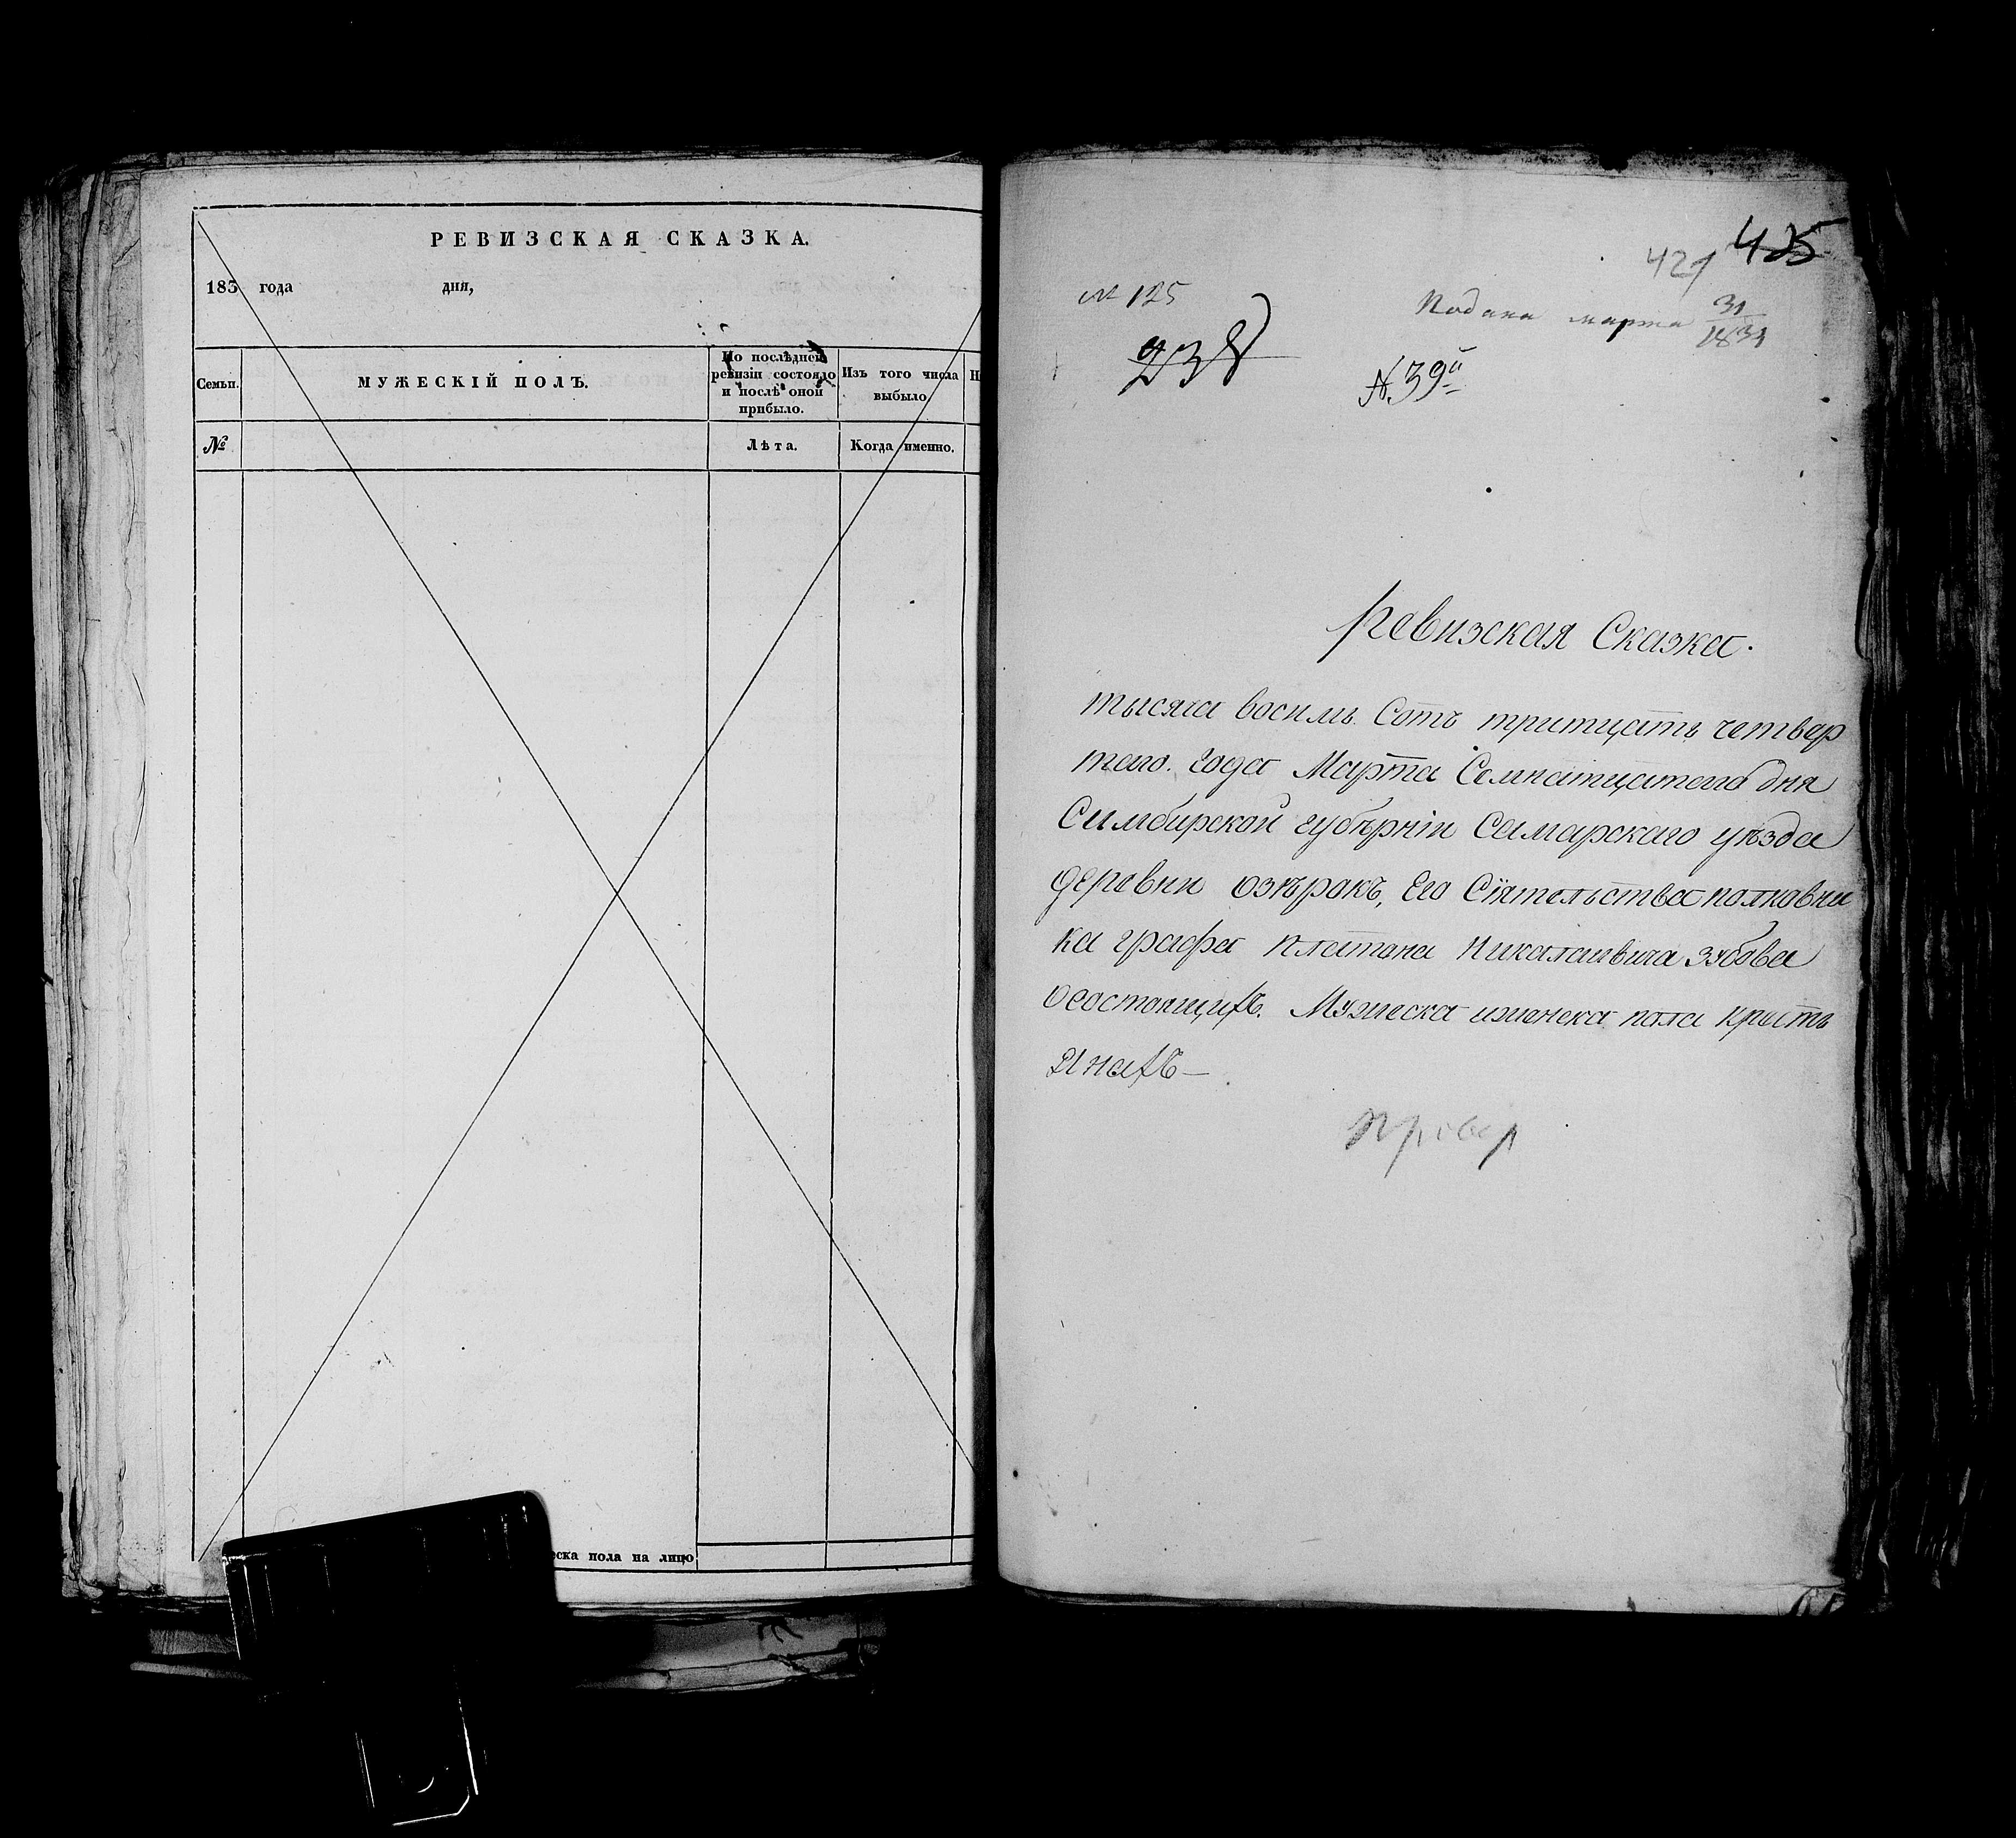 РЕВИЗСКАЯ СКАЗКА.
183 года дня,
Семьи.
МУЖЕСКІЙ ПОЛЪ.
По послѣдней
ревизіи состояло
и послѣ оной
прибыло.
Изъ того числа
выбыло
№
Лѣта.
Когда именно.
ска пола на лицо
425
№ 125
Подана марта 31
1834
238
№ 39й
Ревизская Сказка.
тысяча восимь Сотъ тритцать четвер
таго. года Марта Семнатцатого дня
Симбирской губѣрніи Самарскаго уѣзда
деревни озѣрокъ, Его Сіятельства полковни
ка графа Платона Николаивича зубова
осостоящихъ. Мужеска иженска пола крѣсть
Инахъ —
провер